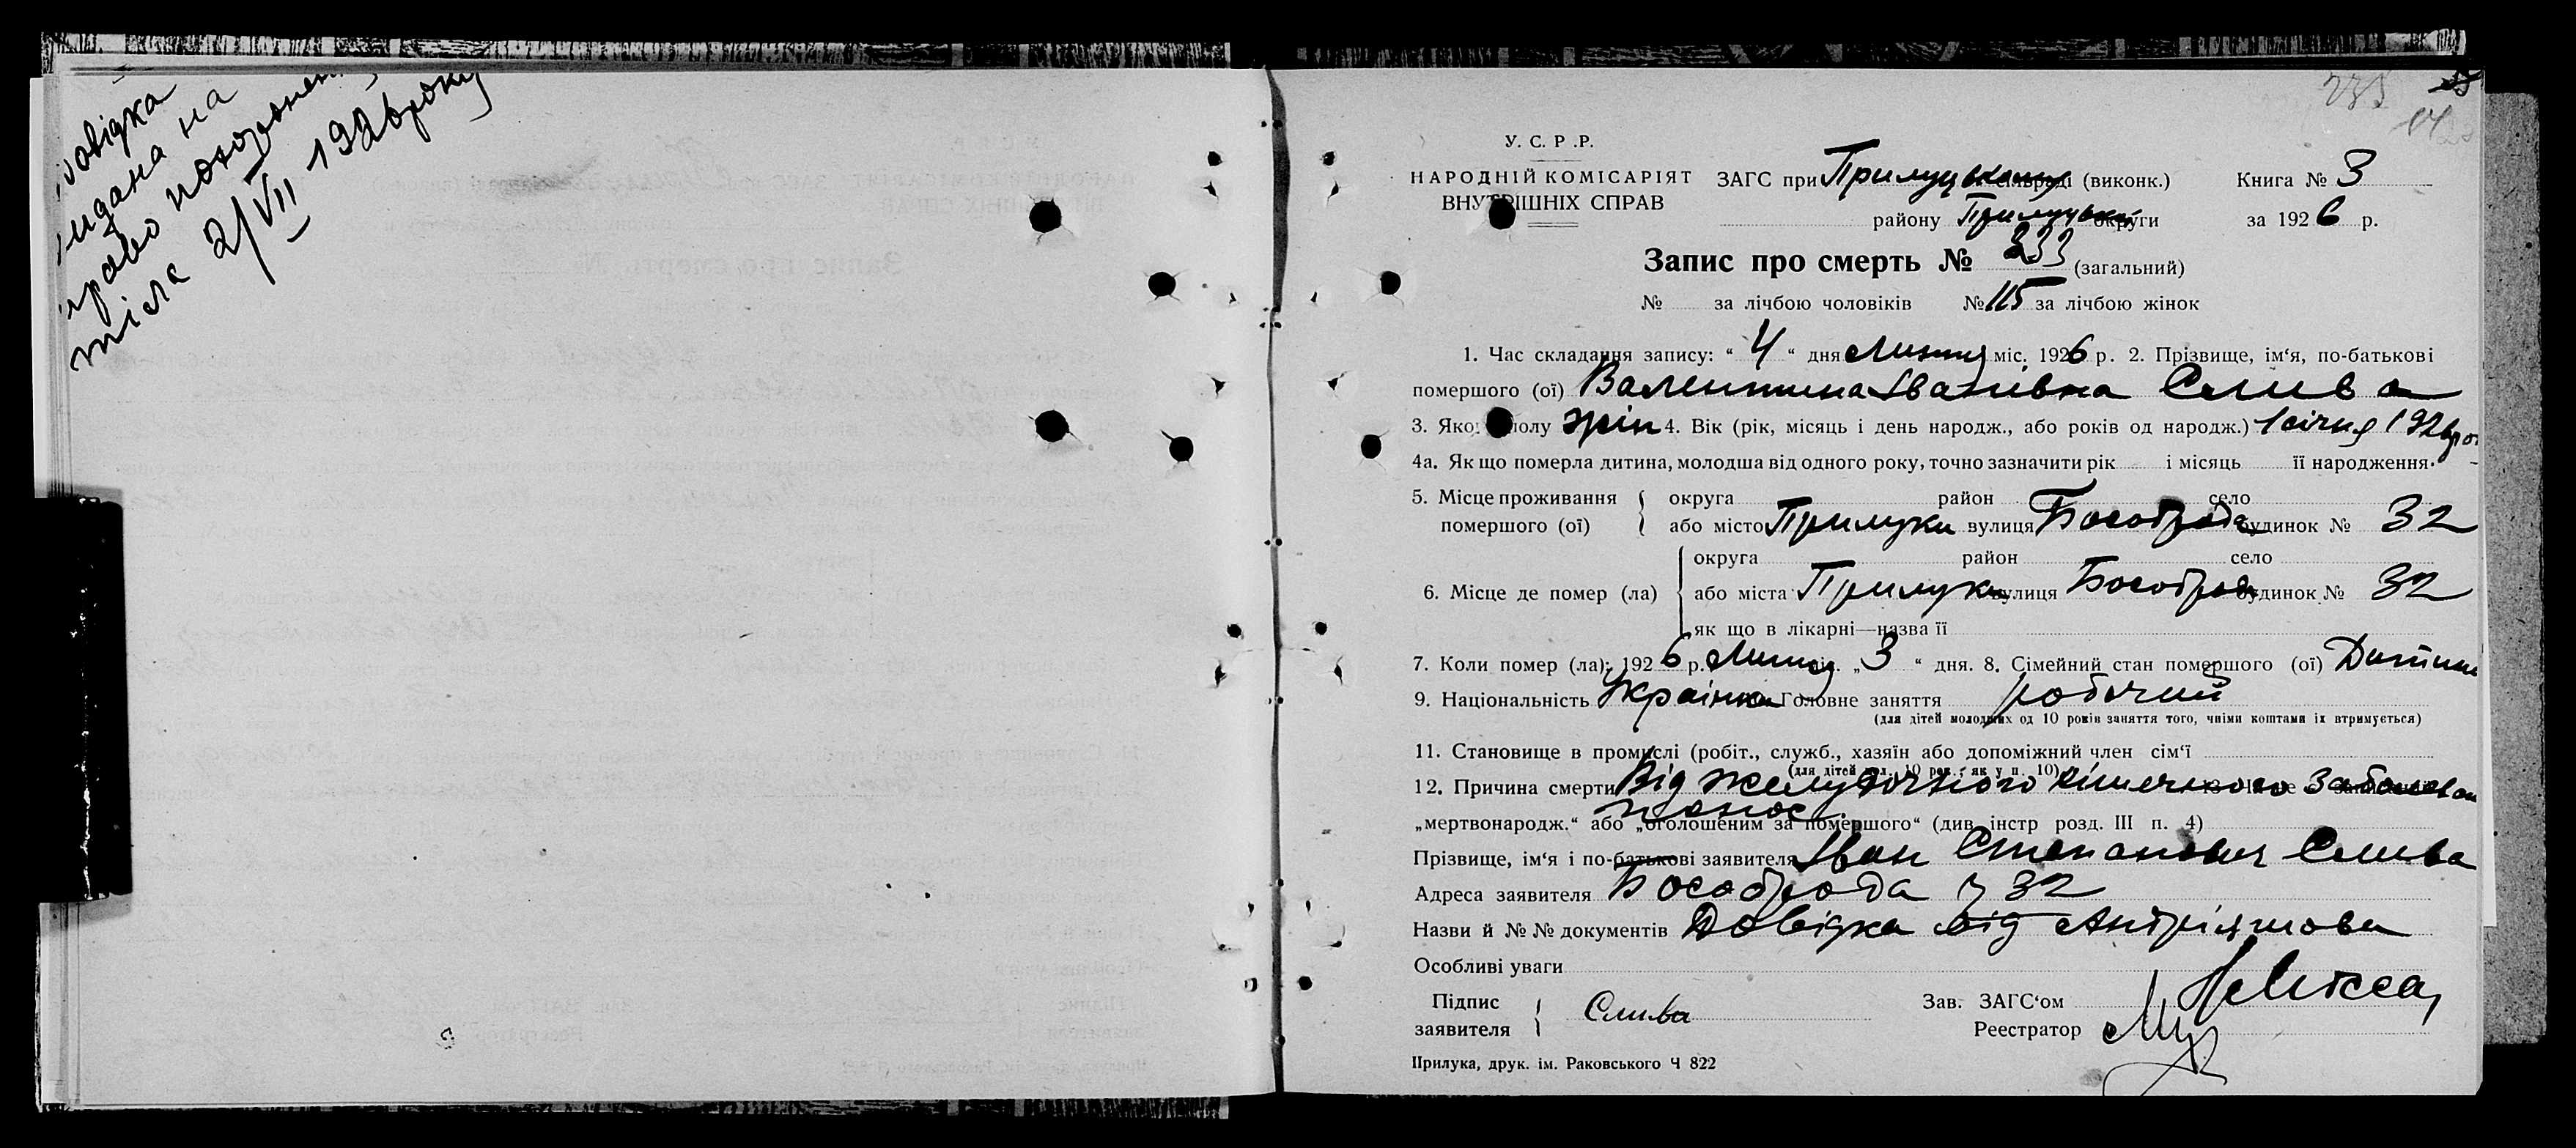 довідка
видана на
право похорону
тіла 2/VII 1926 року
235
У. С. Р .Р.
НАРОДНІЙ КОМІСАРІЯТ
ВНУТРІШНІХ СПРАВ
ЗАГС при Прилуцькому сільраді (виконк.)
Книга № 3
району Прилуцької округи
за 1926 р.
Запис про смерть № 233 (загальний)
№ за лічбою чоловіків № 115 за лічбою жінок
1. Час складання запису: “ 4 “ дня Лютня міс. 1926 р. 2. Прізвище, ім‘я, по-батькові
помершого (ої) Валентина Іванівна Слива
3. Якого полу жін 4. Вік (рік, місяць і день народж., або років од народж.) 1 січня 1926 ро
4а. Як що померла дитина, молодша від одного року, точно зазначити рік і місяць її народження.
5. Місце проживання округа район село
помершого (ої) або місто Прилуки вулиця Бособрода будинок № 32
округа район село
6. Місце де помер (ла) або міста Прилуки вулиця Бособрода будинок № 32
як що в лікарні—назва її
7. Коли помер (ла): 1926 р. Лютня міс. „ 3 “ дня. 8. Сімейний стан помершого (ої) Дитина
9. Національність Українка Головне заняття робочий
(для дітей молодших од 10 років заняття того, чиїми коштами їх втримується)
11. Становище в промислі (робіт., служб., хазяїн або допоміжний член сім‘ї
(для дітей мол. 10 рок., як у п. 10)
12. Причина смерти Від желудочного кишечного заболеван
понос.
„мертвонародж.“ або „оголошеним за помершого“ (див інстр розд. III п. 4)
Прізвище, ім‘я і по-батькові заявителя Іван Степанович Слива
Адреса заявителя Бособрода 32
Назви й № № документів Довідка від
Особливі уваги
Підпис
заявителя Слива
Зав. ЗАГС‘ом
Реестратор
Прилука, друк. ім. Раковського Ч 822